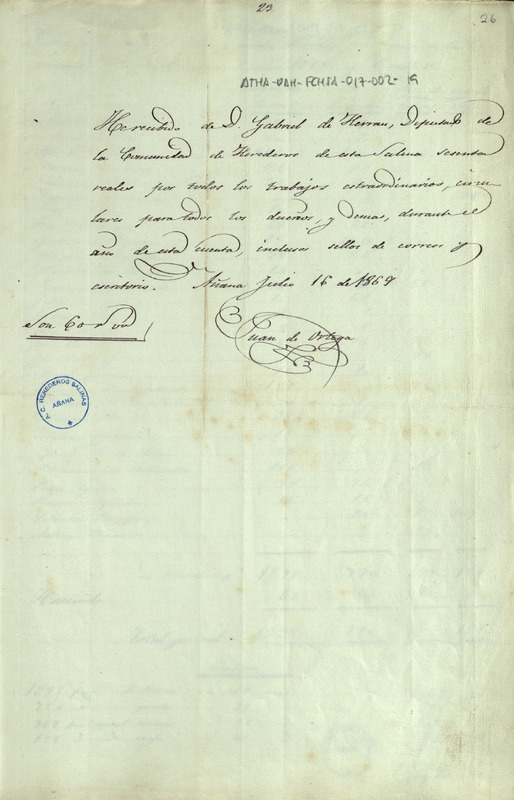 23
26
ATHA-DAH-FCHSA-017-002-19
He recibido de D. Gabriel de Herran, Diputado de
la Comunidad de Herederos de esta Salina sesenta
reales por todos los trabajos estraordinarios, circu-
lares para todos los dueños, y demas, durante el
año de esta cuenta, inclusos sellos de correos y
escritorio. Añana Julio 16 de 1869
Son 60 rs vn
Juan de Ortega
C. HEREDEROS SALINAS
AÑANA